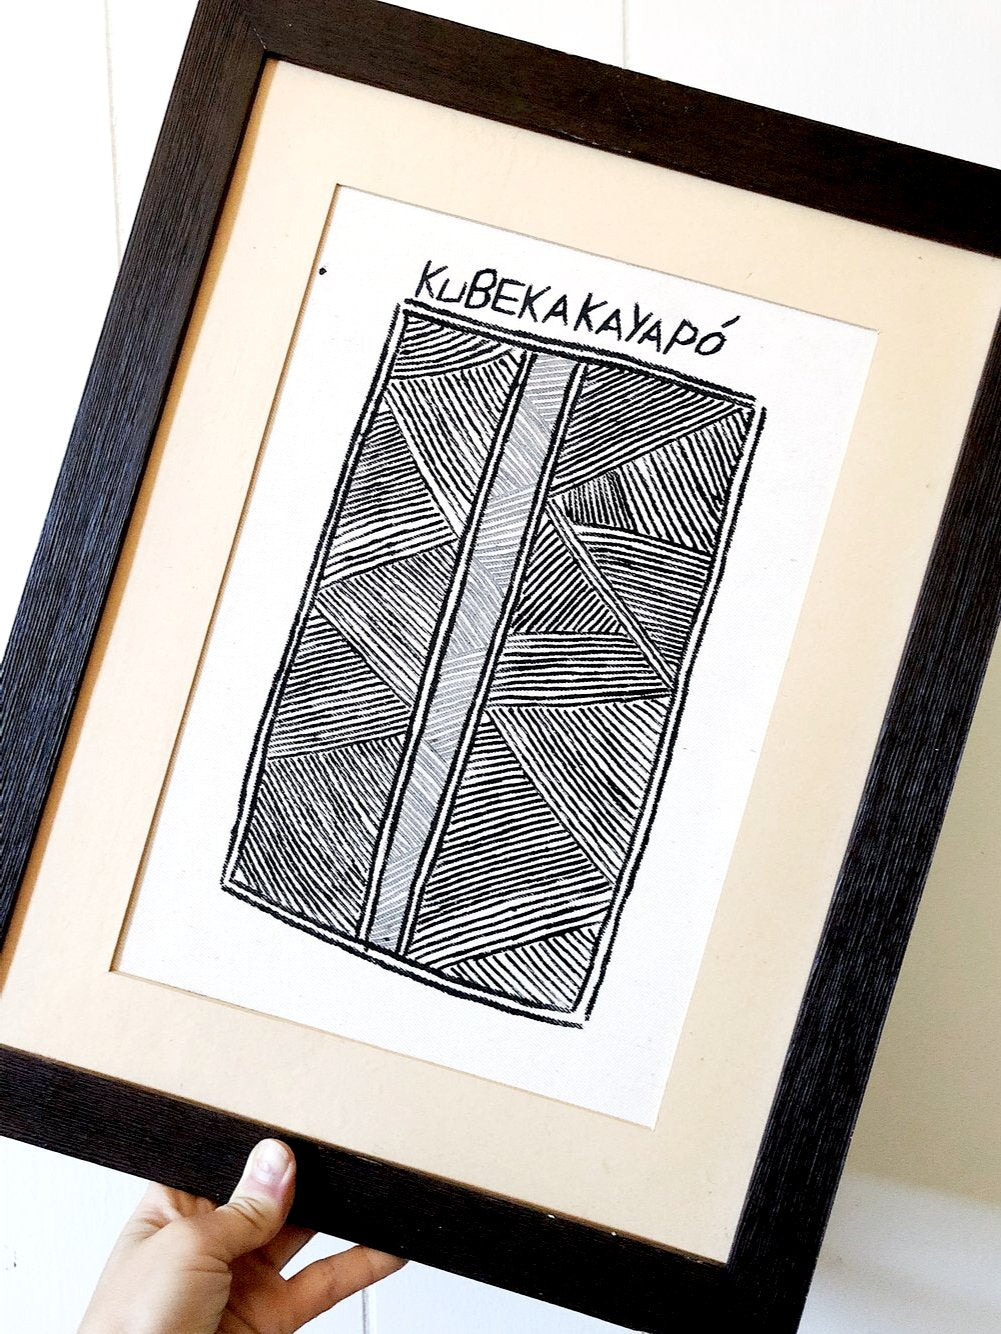 KUBEKAKAYAPÓ